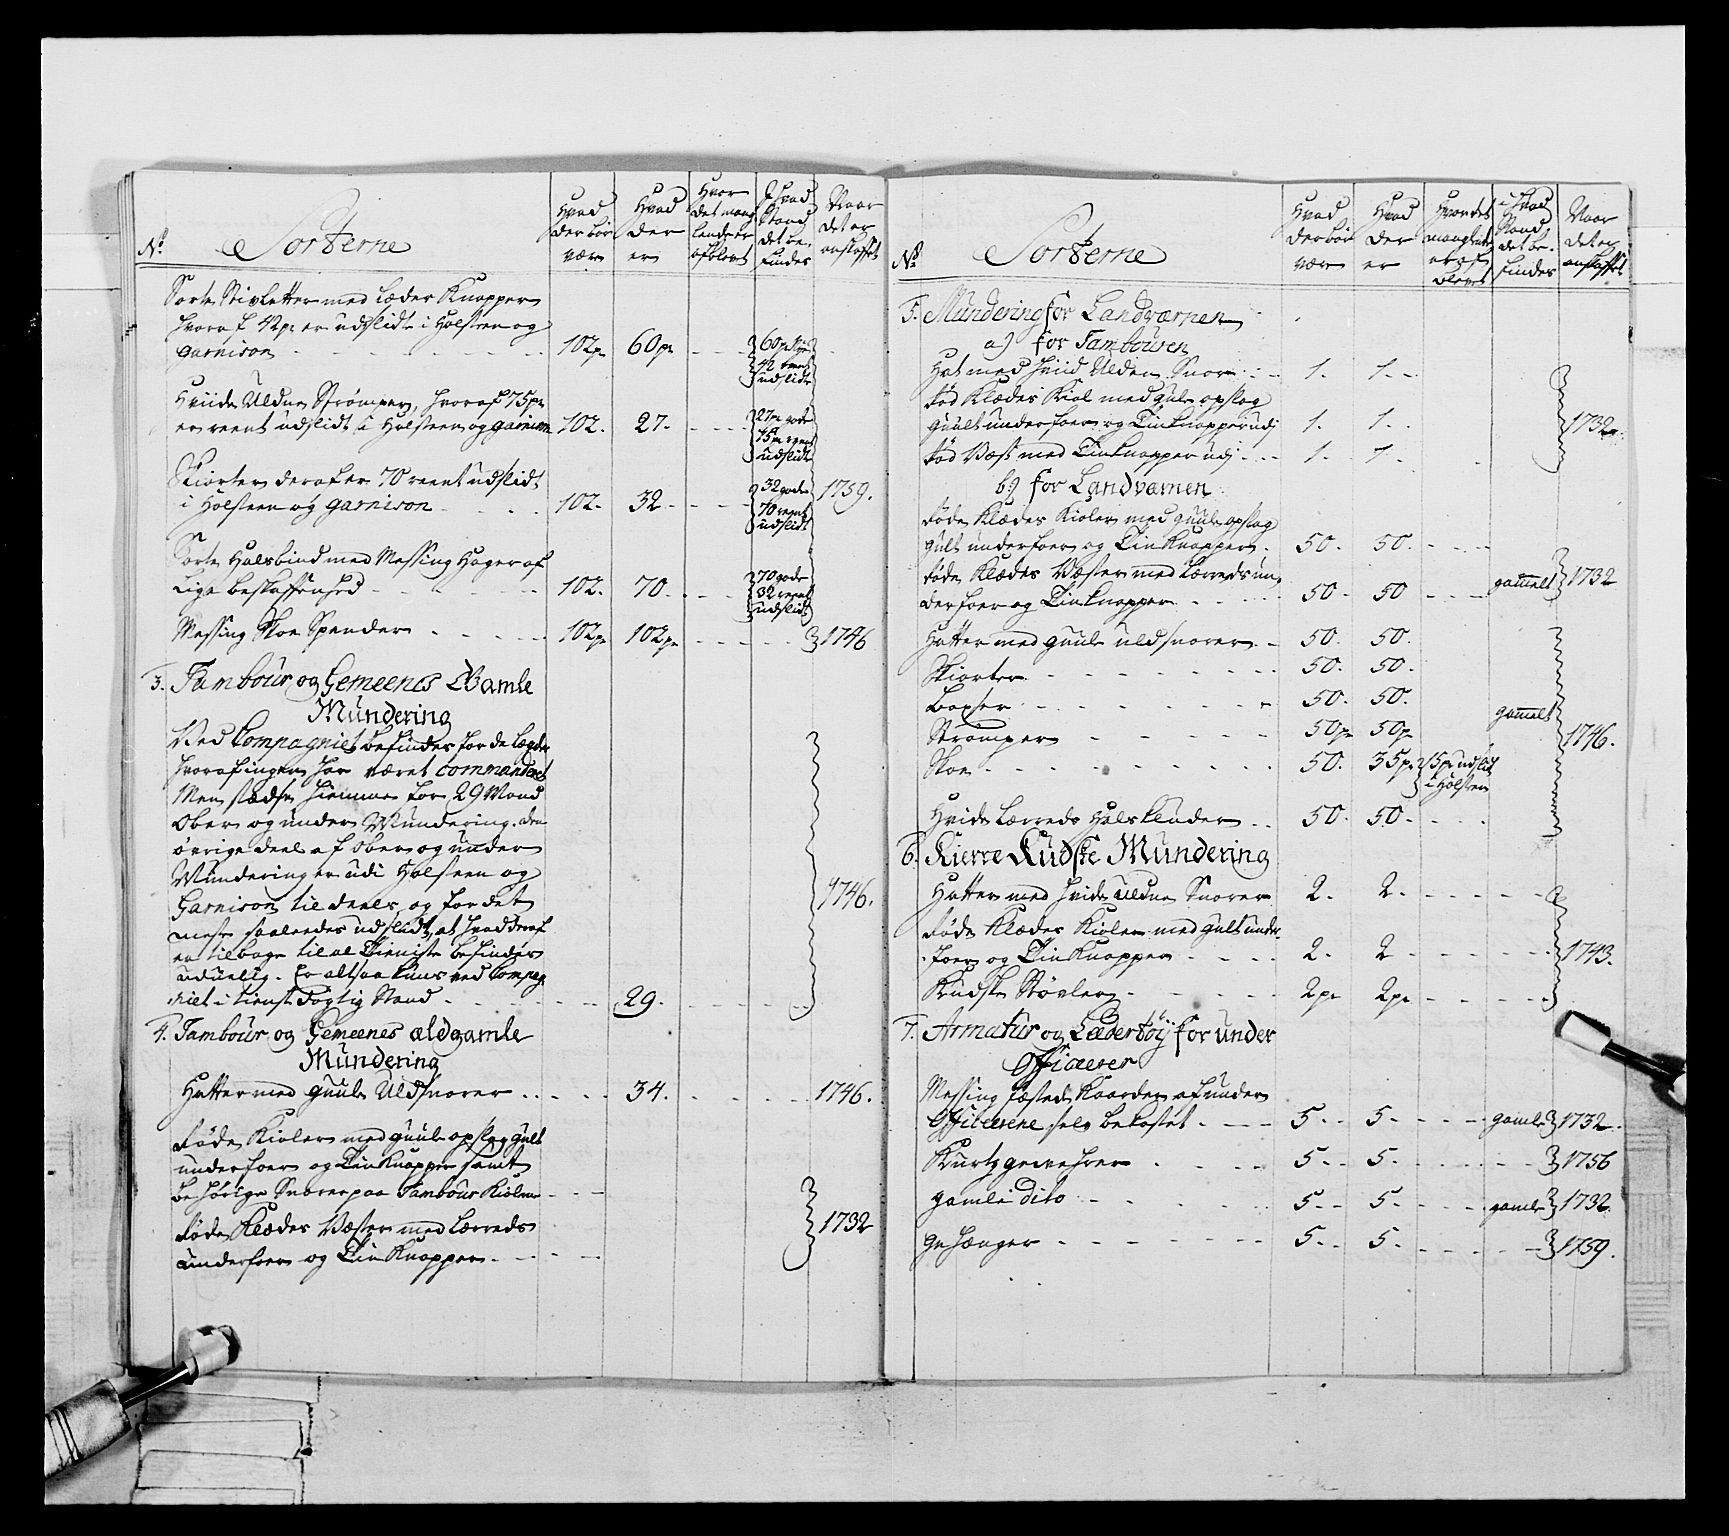 No
Sorterne
Hvad der bør være
Hvad der er
Hvor det mang lende er afblevet
I hvad Stand det be- findes
Naar det er anskaffet
Sorte Stivletter med Læder Knapper
hvoraf 42 pr er udslidt i Holsteen og
garnison - - - 102 pr 60 pr - - 60 pr Nye
42 reent
udslidt
Hviide Uldne Strømper, hvoraf 75 pr
er reent udslidt i Holsteen og garnison 102. 27. - - 27 pr gode
75 pr reent
udslidt
Skiorter deraf er 70 reent udslidt
i Holsteen og garnison - - 102. 32 - - 32 gode 1759.
70 reent
udslidt
Sorte Halsbind med Messing Hager af
Lige beskaffenhed - - - 102. 70. - - 70 gode
32 reent
udslidt
Messing Skoe Spender - - - 102 pr 102 pr - - - 1746
3. Tambour og Gemeenes Gamle
Mundering
Ved Compagniet befindes for de Lægder
hvoraf ingen har været commanderet
Men stædse hiemme for 29 Mand
Ober og under Mundering. den
øvrige deel af Ober og under
Mundering er udi Holsteen og
Garnison til deels, og for det
meste saaledes udslidt, at hvad deraf
er tilbage til al Tieniste befindes
uduelig. Er altsaa kuns ved Compag
niet i tienstdygtig Stand - - - 29. - - - 1746.
4. Tambour og Gemeenes ældgamle
Mundering
Hatter med guule Uldsnorer - - - 34. - - - 1746.
Røde Kioler med guule opslag gult
underfoer og Tin Knapper samt
behørige Snorer paa Tambour Kiolen - -
Røde Klædes Væster med Lærreds
underfoer og Tin Knapper - - - 1732
No
Sorterne
Hvad der bør være
Hvad der er
Hvor det manglende er af blevet
i hvad Stand det be- findes
Naar det er anskaffet
5. Mundering for Landværnen
a) for Tambouren
Hat med hviid Ulden Snor - - 1. 1. -
Rød Klædes Kiol med gule opslag
guult underfoer og Tinknapper udj 1. 1. - 1732
Rød Væst med Tinknapper udj - - 1. 1. -
b) for Landværnen
Røde Klædes Kioler med guule opslag
gult underfoer og Tin Knapper - 50. 50. - - -
Røde Klædes Væster med Lærreds un-
derfoer og Tinknapper - - - 50. 50 - - - gamelt 1732
Hatter med guule uldsnorer - - 50. 50.
Skiorter - - - 50. 50.
Boxser - - - 50. 50. gamelt
Strømper - - - 50 pr 50 pr 1746.
Skoe - - - 50. 35 pr 15 pr udslidt
i Holsteen
Hvide Lærreds Halskluder - - 50. 50. - - -
6. Kierre Kudske Mundering
Hatter med hvide uldne Snorer 2. 2. - - - -
Røde Klædes Kioler med Gult under-
foer og Tin Knapper - - - 2. 2 - - - - 1743.
Kudske Støvler - - - 2 pr 2 pr - - - -
7. Armatur og Lædertøy for under
Officerer
Messing fæsted Kaarder af under
Officerene selv bekostet - - - 5 - - 5 - - - - gamle 1732.
Kurtzgewehrer - - - 5 - - 5 - - - - 1756
gamle dito - - - 5 - - 5 - - - - gamle 1732.
Gehænger - - - 5 - - 5 - - - - 1759.